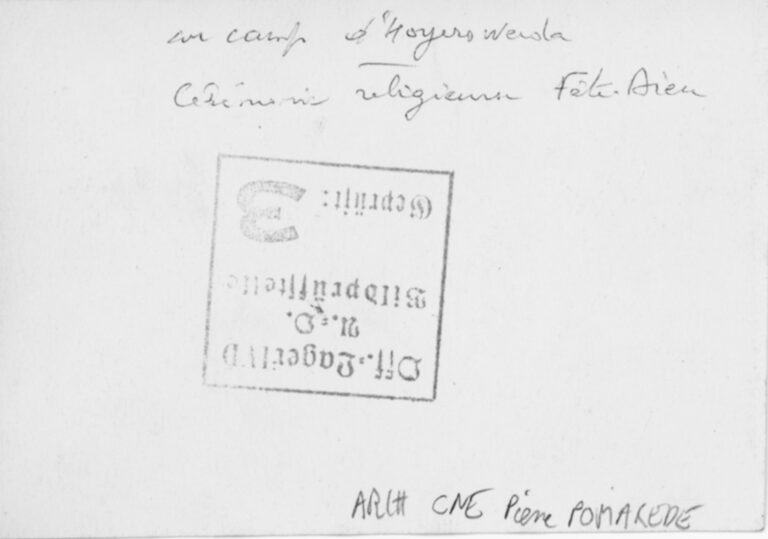 au camp d'Hoyerswerda
Cérémonie religieuse Fête-Dieu
Off.-Lager IV D
A.-O.
Bildprüfstelle
Geprüft: 3
ARCH CNE Pierre POMAREDE